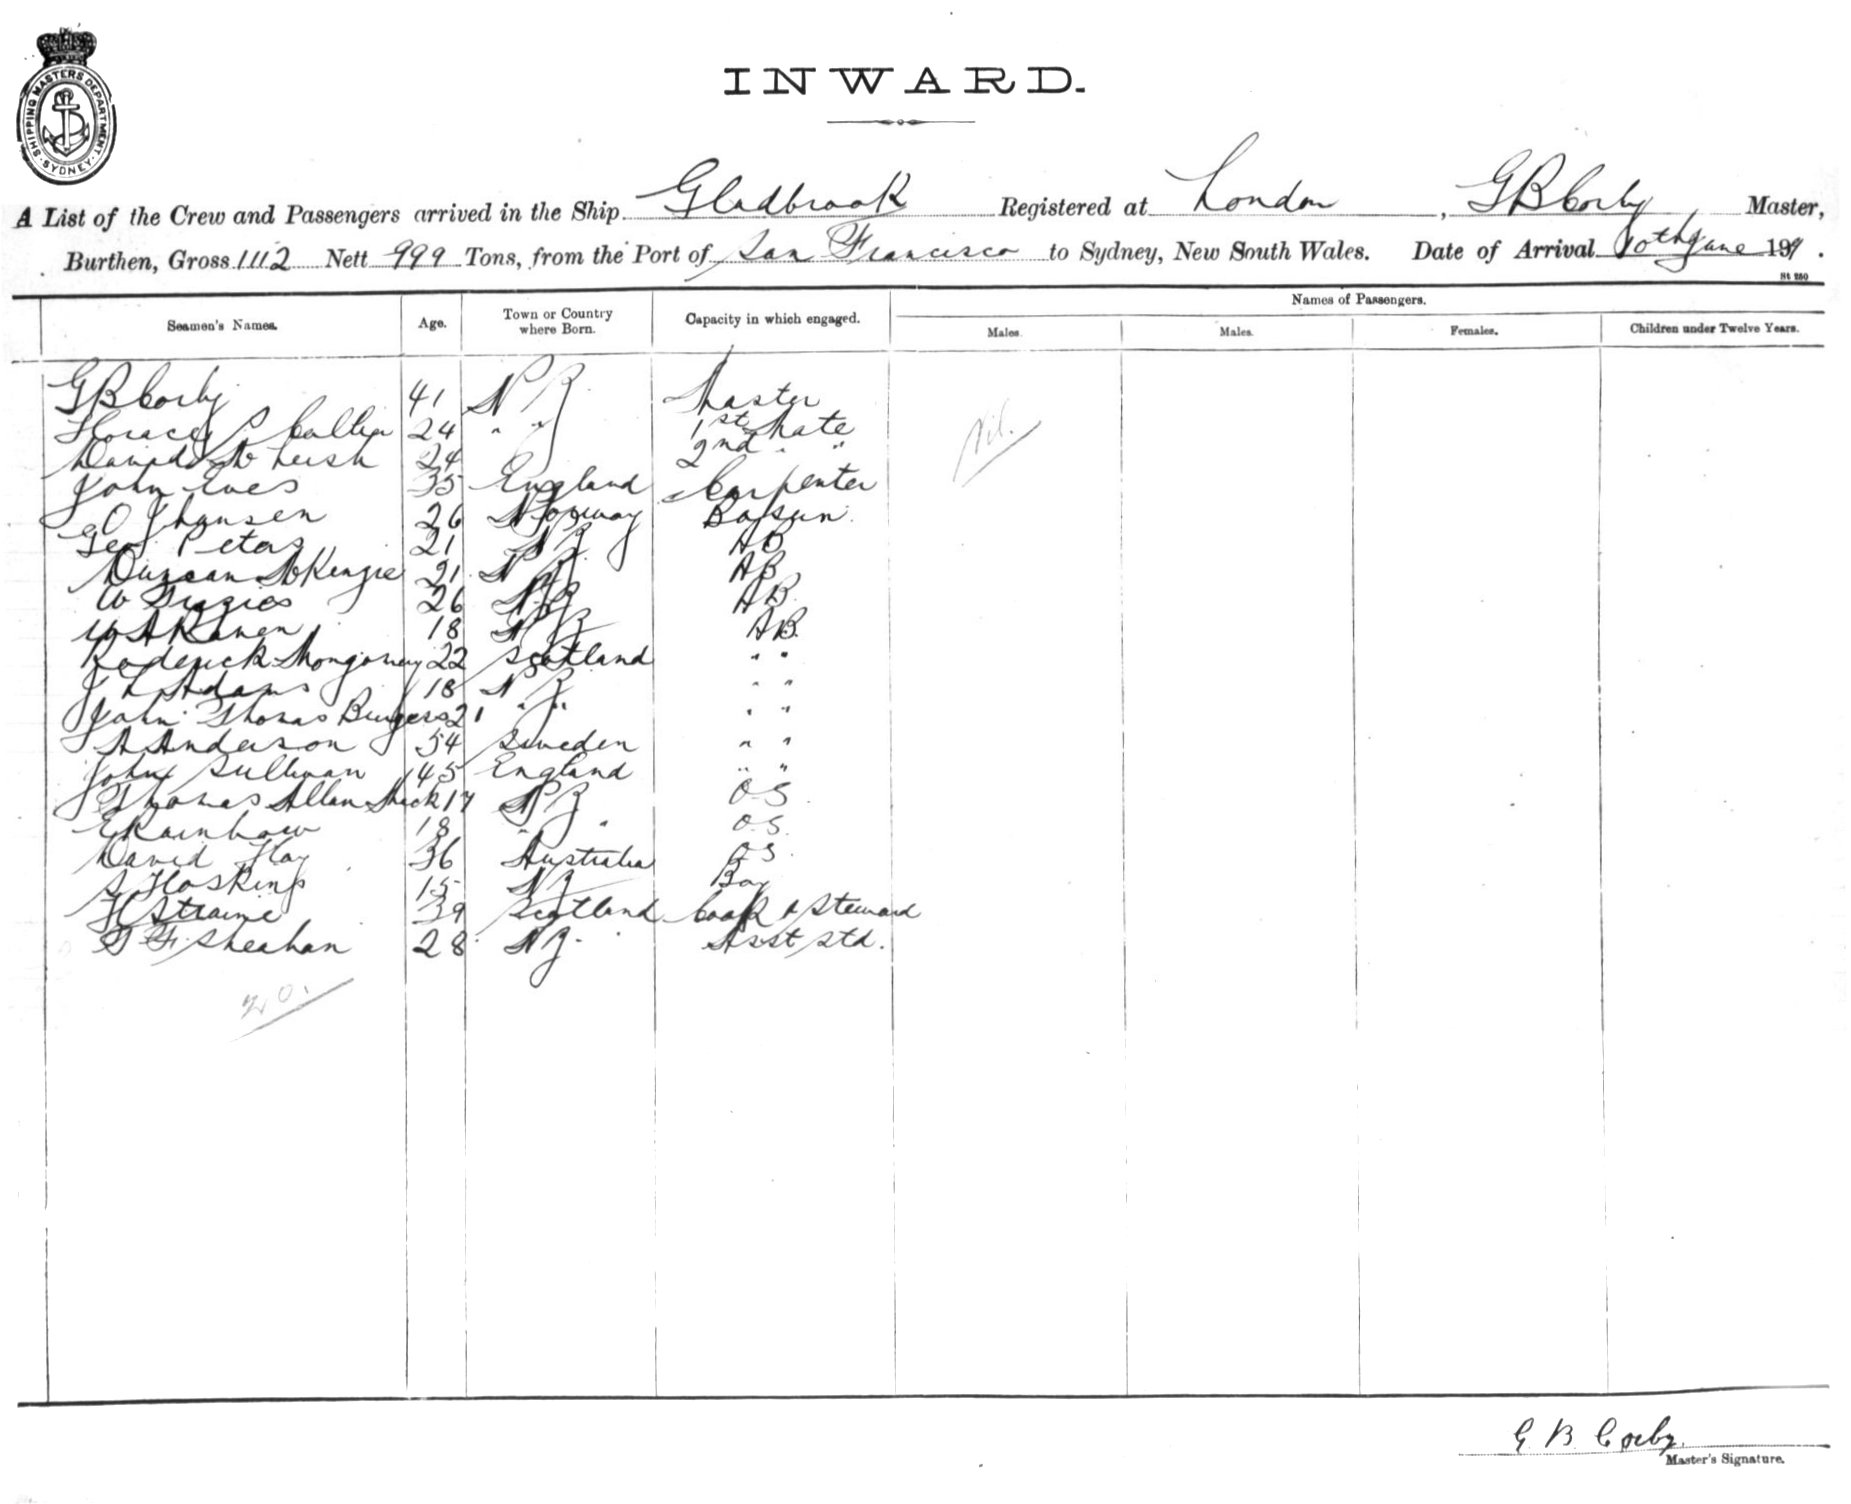 SHIPPING MASTERS DEPARTMENT · SYDNEY ·
INWARD.
A List of the Crew and Passengers arrived in the Ship Gladbrook Registered at London, G B Corby, Master,
Burthen, Gross 1112 Nett 999 Tons, from the Port of San Francisco to Sydney, New South Wales. Date of Arrival 10th June 19
St 250
Seamen's Names. Age. Town or Country where Born. Capacity in which engaged. Names of Passengers.
Males. Males. Females. Children under Twelve Years.
G B Corby 41 N Z Master
Horace Collier 24 " " 1st Mate
David 24 2nd " "
John Eves 35 England Carpenter
O J Hansen 26 Norway Bosun
Geo Peters 21 N Z AB
Duncan McKenzie 21 N Z AB
W 26 N Z AB
18 N Z AB
Roderick 22 Scotland " "
J L Adams 18 N Z " "
John Thomas Burgess 21 " " " "
A Anderson 54 Sweden " "
John Sullivan 45 England " "
Thomas Allan 17 N Z O.S
E Rainbow 18 " " O.S.
David Hay 36 Australia O S
S Hoskins 15 N Z Boy
39 Scotland Cook & Steward
F. Sheahan 28 N Z. Asst Std.
Nil.
20.
G B Corby.
Master's Signature.